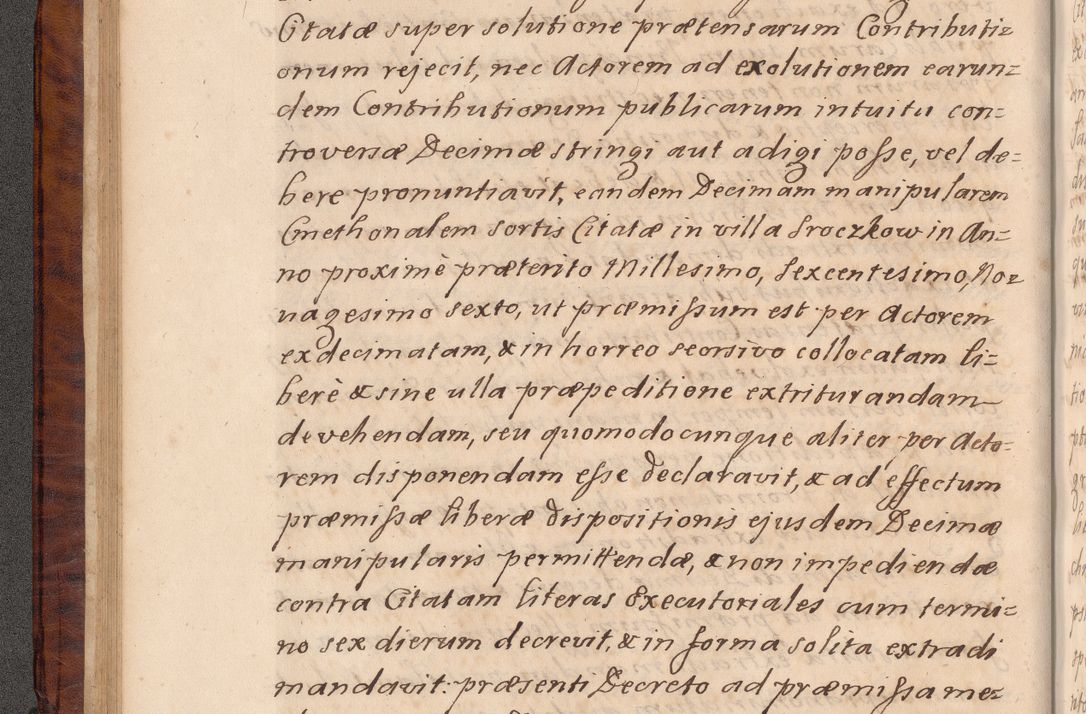 Citatæ super solutione prætensarum Contributi=
onum rejecit, nec Actorem ad exolutionem earun=
dem Contributionum publicarum intuitu con=
troversæ Decimæ stringi aut adigi posse, vel de=
bere pronuntiavit, eandem Decimam manipularem
Cmethonalem sortis Citatæ in villa Sroczkow in An=
no proximè præterito Millesimo, Sexcentesimo, No=
nagesimo sexto, ut præmissum est per Actorem
exdecimatam, & in horreo seorsivo collocatam li=
berè & sine ulla præpeditione extriturandam
devehendam, seu quomodocunque aliter per Acto=
rem disponendam esse declaravit, & ad effectum
præmissæ liberæ dispositionis ejusdem Decimæ
manipularis permittendæ, & non impediendæ
contra Citatam literas Executoriales cum termi=
no sex dierum decrevit, & in forma solita extradi
mandavit: præsenti Decreto ad præmissa me=